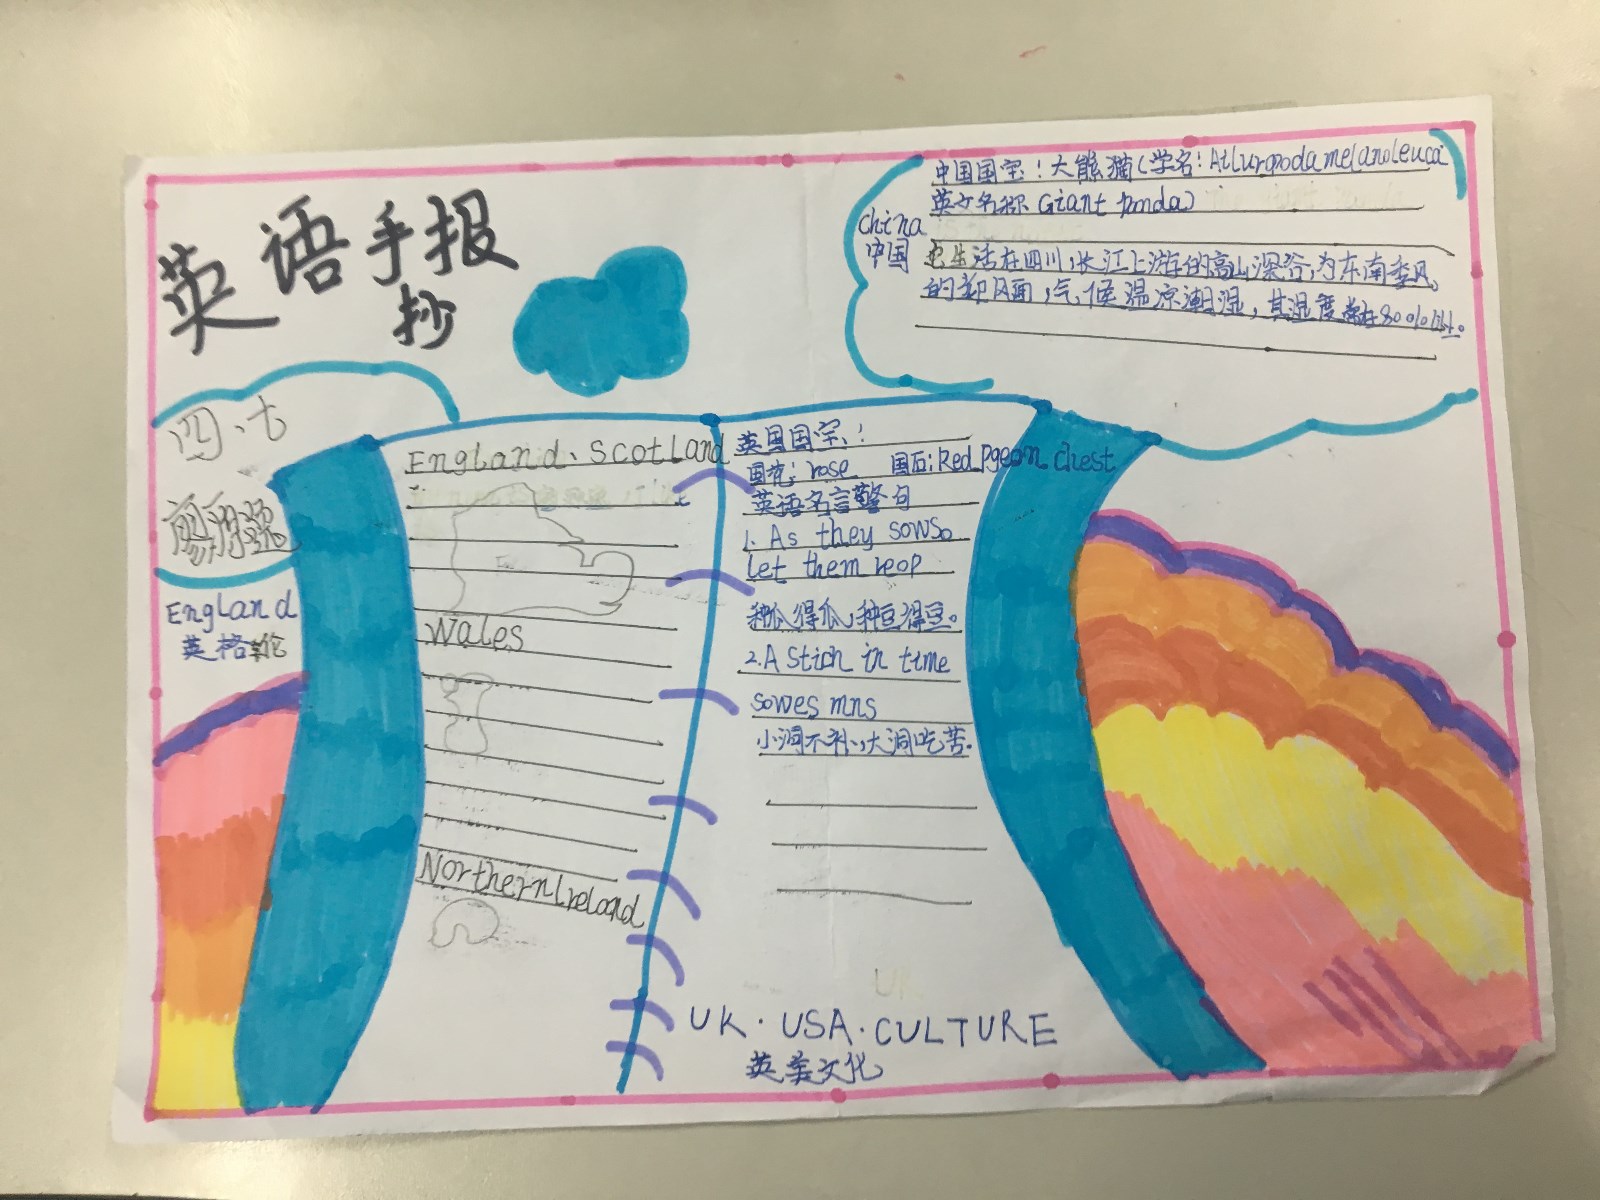 英语手报
抄
中国国宝：大熊猫(学名：Ailuropoda melanoleuca
英文名称 Giant panda)
China
中国
它生活在四川，长江上游的高山深谷，为东南季风
的迎风面，气候温凉潮湿，其湿度常在80%以上。
四、七
England
英格伦
England、Scotland
Wales
Northern Ireland
英国国宝：
国花：rose 国石：Red pgeon chest
英语名言警句
1. As they sowso
let them reap
种瓜得瓜，种豆得豆。
2. A Stich in time
sowes mns
小洞不补，大洞吃苦.
UK·USA·CULTURE
英美文化